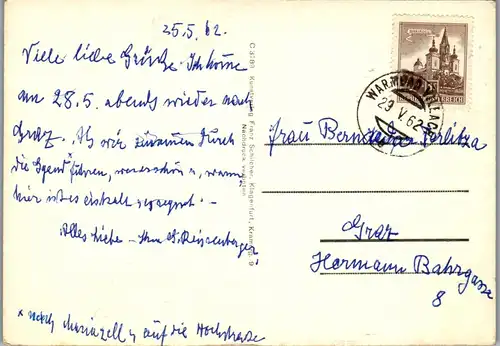 25.5.62
Viele liebe Grüße. Ich komme
am 28.5. abends wieder nach
Graz. Als wir zusammen durch
die Gegend* fuhren, war es schön u. warm,
hier ist es eiskalt
Alles Liebe – Ihre
* nach Mariazell u. auf die Hochstrasse
C 3581 Kunstverlag Franz Schilcher, Klagenfurt,
Nachdruck verboten
WARMBAD VILLACH
29.V.62
Frau
Graz
Hermann Bahrgasse
8